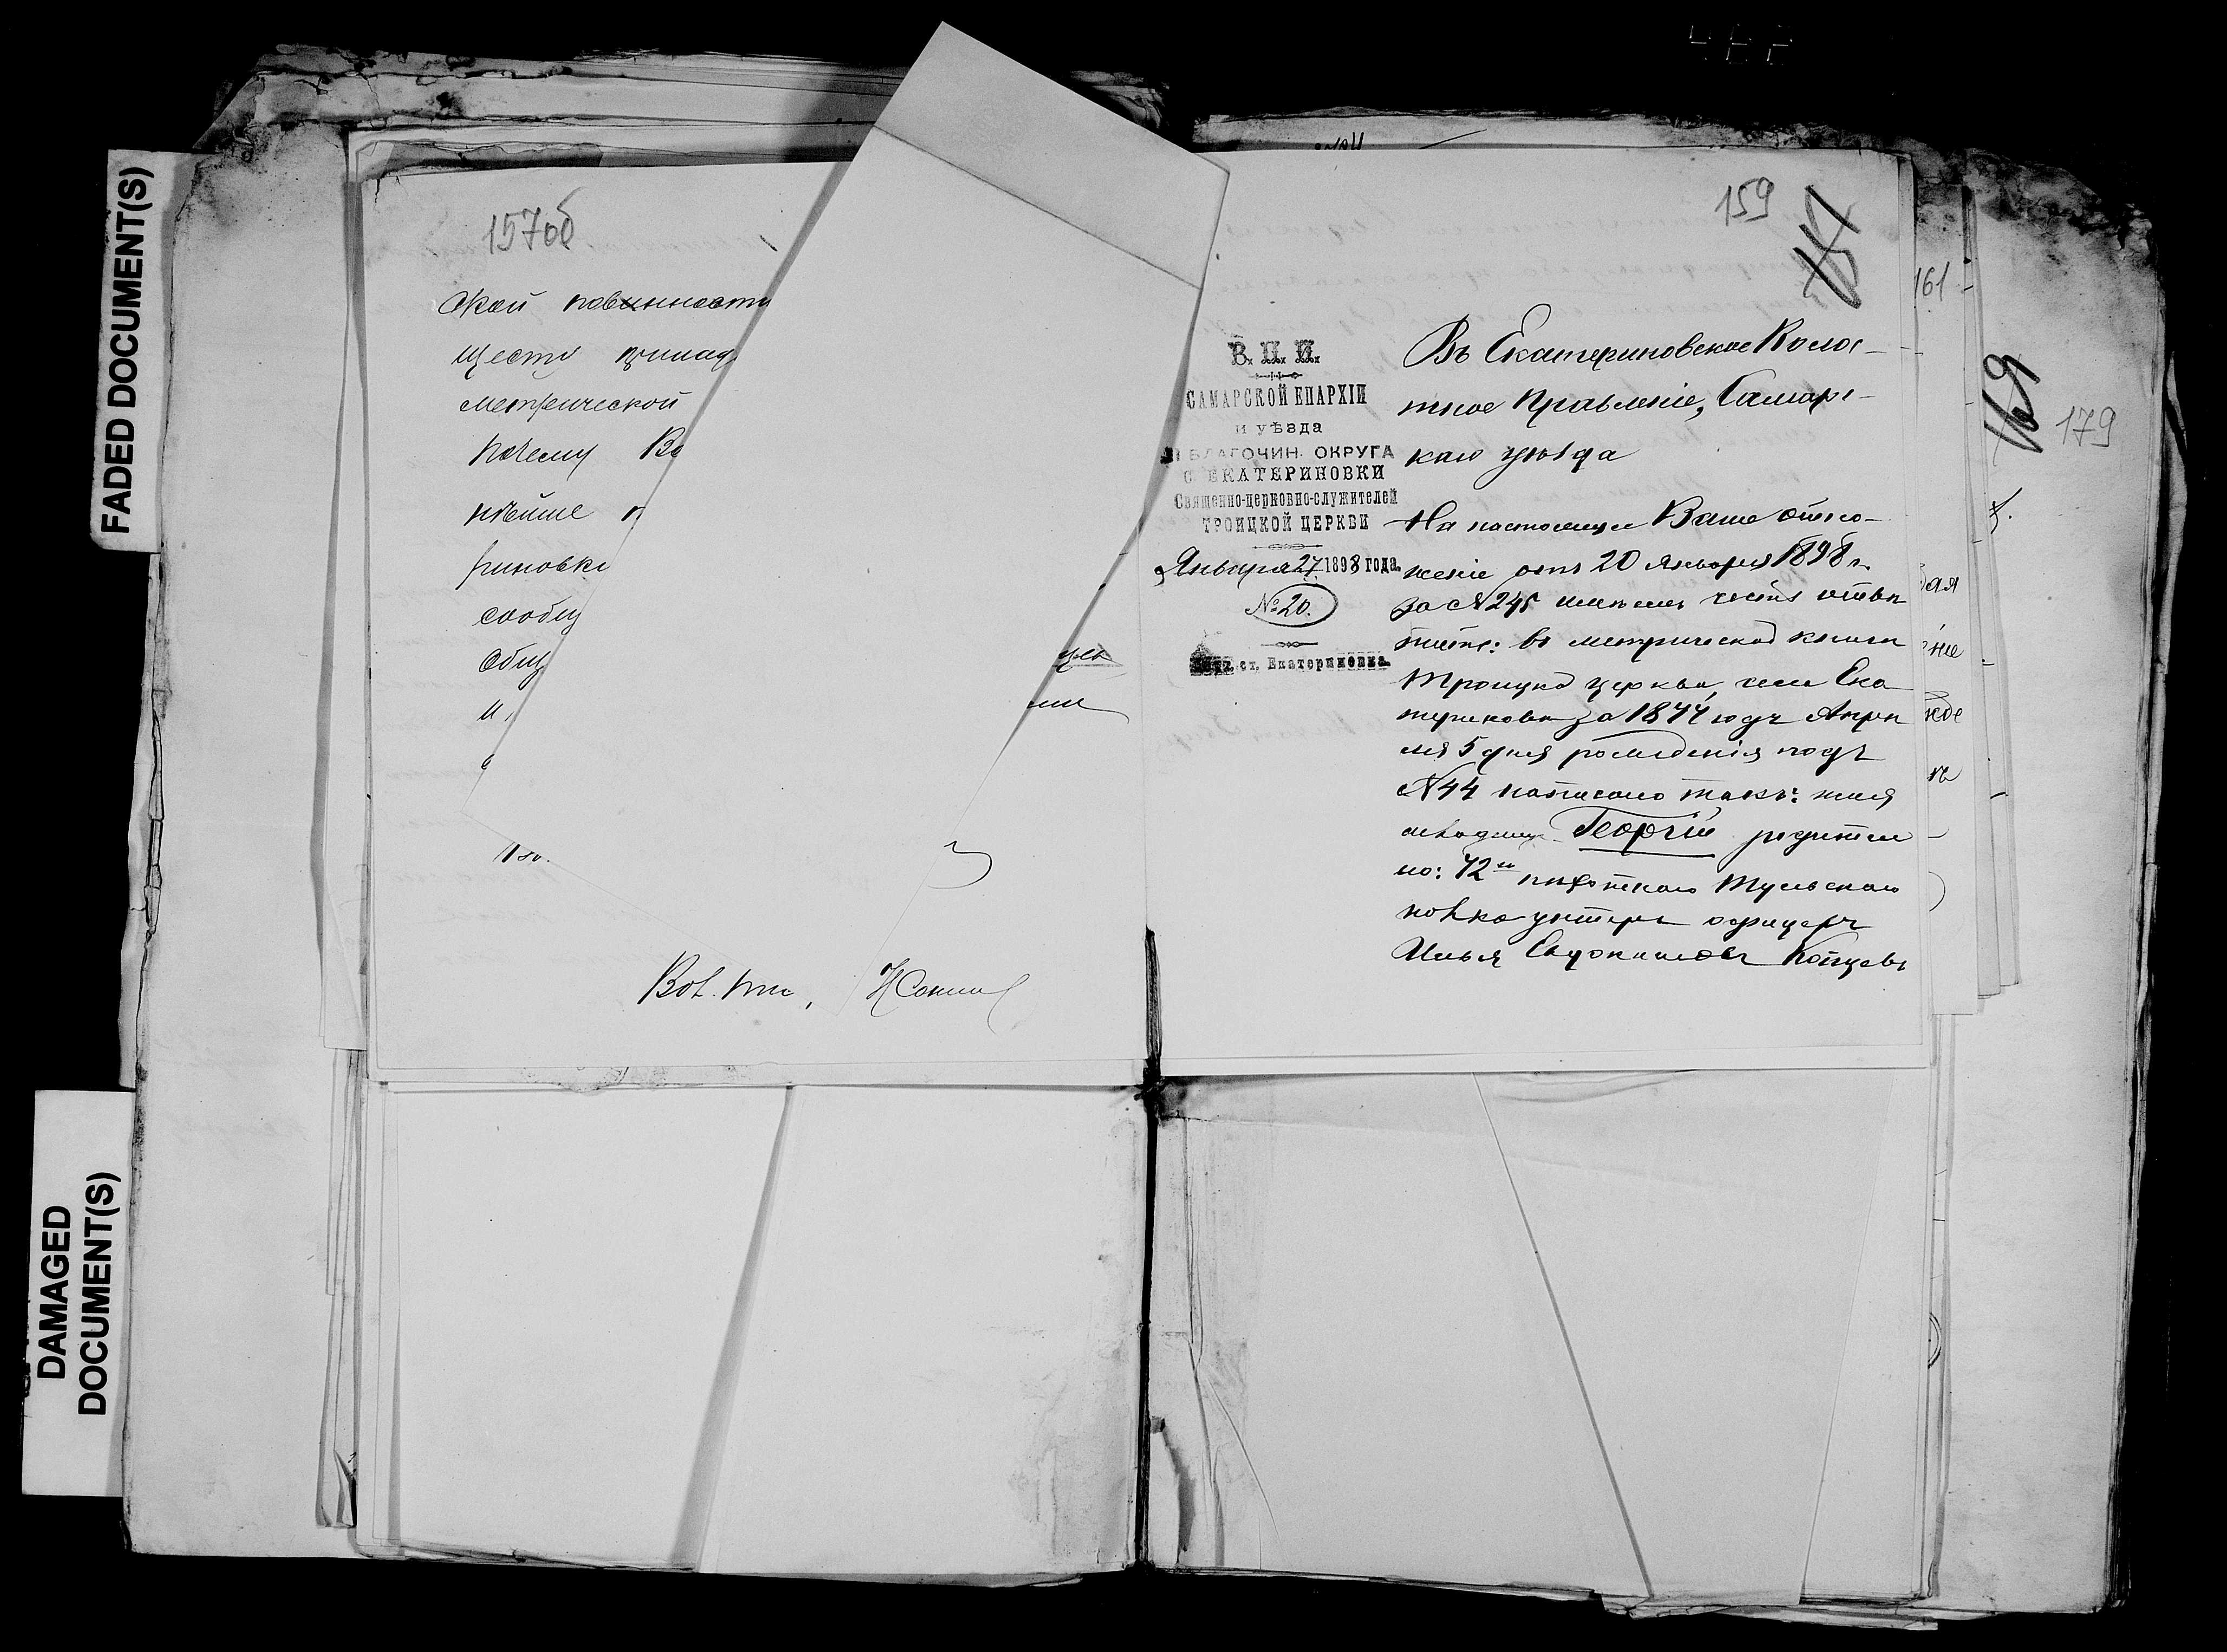 FADED DOCUMENT(S)
DAMAGED
DOCUMENT(S)
157об
ской повинности
щесту
метрической
почему Во
нѣйше
риновк
сообщ
Общ
И
159
161
169
179
В. П. И.
САМАРСКОЙ ЕПАРХІИ
и уѣзда
БЛАГОЧИН. ОКРУГА
С. ЕКАТЕРИНОВКИ
Священно-церковно-служителей
ТРОИЦКОЙ ЦЕРКВИ
Января 27 1898 года.
№ 20.
ст. Екатериновка.
Въ Екатериновское Волос-
тное Правленіе, Самарс-
каго уѣзда
На настоящее Ваше отно-
шеніе отъ 20 Января 1898 г.
за № 245 имѣемъ честь отвѣ
тить: въ метрической книгѣ
Троицкой церкви, села Ека
териновки за 1877 годъ Апрѣ
ля 5 дня рожденія подъ
№ 44 написано такъ:
Георгій родители
его: 72го пѣхотнаго Тульскаго
полка унтеръ офицеръ
Илья Евдокимовъ Копцевъ